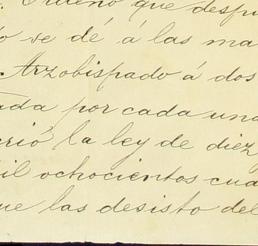 . Ordeno que despu
o se dé á las ma
. Arzobispado á dos
ada por cada una
crió la ley de diez
il ochocientos cua
ue las desisto del